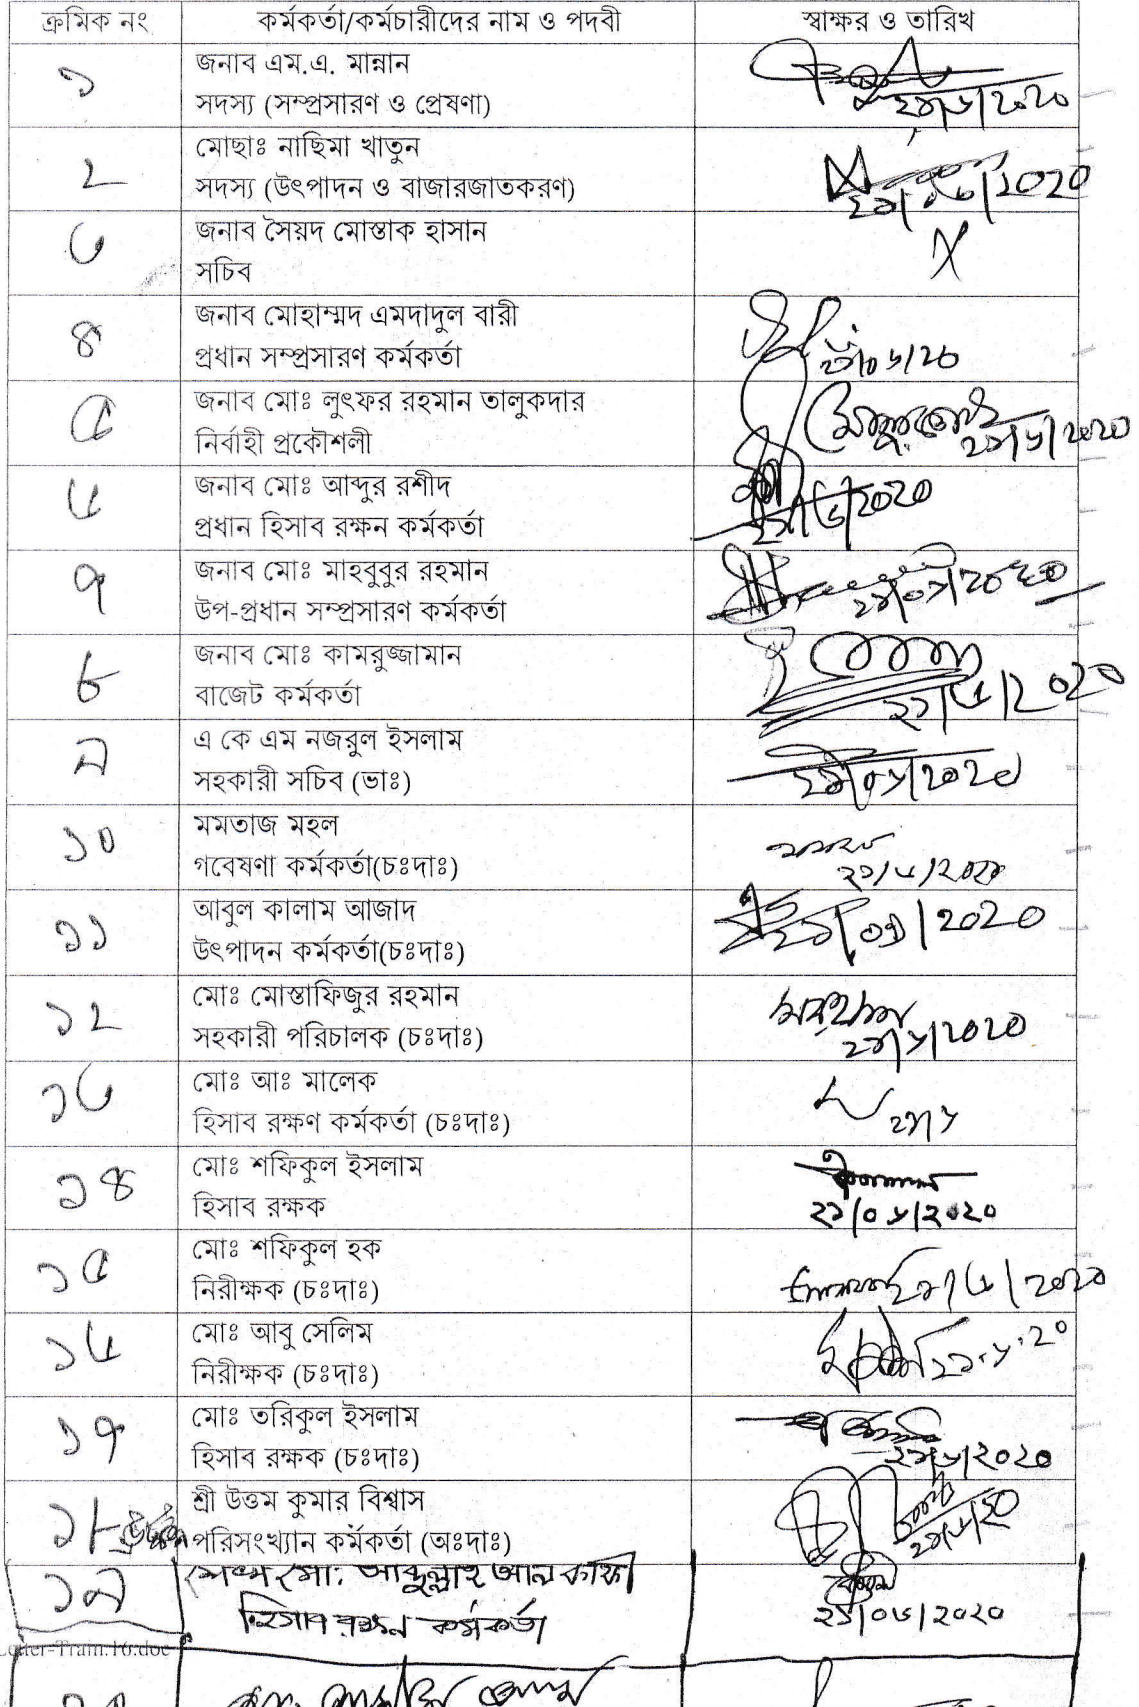 ক্রমিক নং কর্মকর্তা/কর্মচারীদের নাম ও পদবী স্বাক্ষর ও তারিখ
১ জনাব এম.এ. মান্নান
সদস্য (সম্প্রসারণ ও প্রেষণা) ২১/৬/২০২০
২ মোছাঃ নাছিমা খাতুন
সদস্য (উৎপাদন ও বাজারজাতকরণ) ২১/৬/২০২০
৩ জনাব সৈয়দ মোস্তাক হাসান
সচিব
৪ জনাব মোহাম্মদ এমদাদুল বারী
প্রধান সম্প্রসারণ কর্মকর্তা
৫ জনাব মোঃ লুৎফর রহমান তালুকদার
নির্বাহী প্রকৌশলী ২১/৬/২০২০
৬ জনাব মোঃ আব্দুর রশীদ
প্রধান হিসাব রক্ষন কর্মকর্তা ২১/৬/২০২০
৭ জনাব মোঃ মাহবুবুর রহমান
উপ-প্রধান সম্প্রসারণ কর্মকর্তা ২১/০৬/২০২০
৮ জনাব মোঃ কামরুজ্জামান
বাজেট কর্মকর্তা ২১/৬/২০২০
৯ এ কে এম নজরুল ইসলাম
সহকারী সচিব (ভাঃ) ২১/০৬/২০২০
১০ মমতাজ মহল
গবেষণা কর্মকর্তা(চঃদাঃ) ২১/৬/২০২০
১১ আবুল কালাম আজাদ
উৎপাদন কর্মকর্তা(চঃদাঃ) ২১/০৬/২০২০
১২ মোঃ মোস্তাফিজুর রহমান
সহকারী পরিচালক (চঃদাঃ) ২১/৬/২০২০
১৩ মোঃ আঃ মালেক
হিসাব রক্ষণ কর্মকর্তা (চঃদাঃ) ২১/৬
১৪ মোঃ শফিকুল ইসলাম
হিসাব রক্ষক ২১/০৬/২০২০
১৫ মোঃ শফিকুল হক
নিরীক্ষক (চঃদাঃ) ২১/৬/২০২০
১৬ মোঃ আবু সেলিম
নিরীক্ষক (চঃদাঃ) ২১.৬.২০
১৭ মোঃ তরিকুল ইসলাম
হিসাব রক্ষক (চঃদাঃ) ২১/৬/২০২০
১৮ শ্রী উত্তম কুমার বিশ্বাস
পরিসংখ্যান কর্মকর্তা (অঃদাঃ) ২১/৬/২০
১৯ মো: আব্দুল্লাহ আল
হিসাব রক্ষন কর্মকর্তা ২১/০৬/২০২০